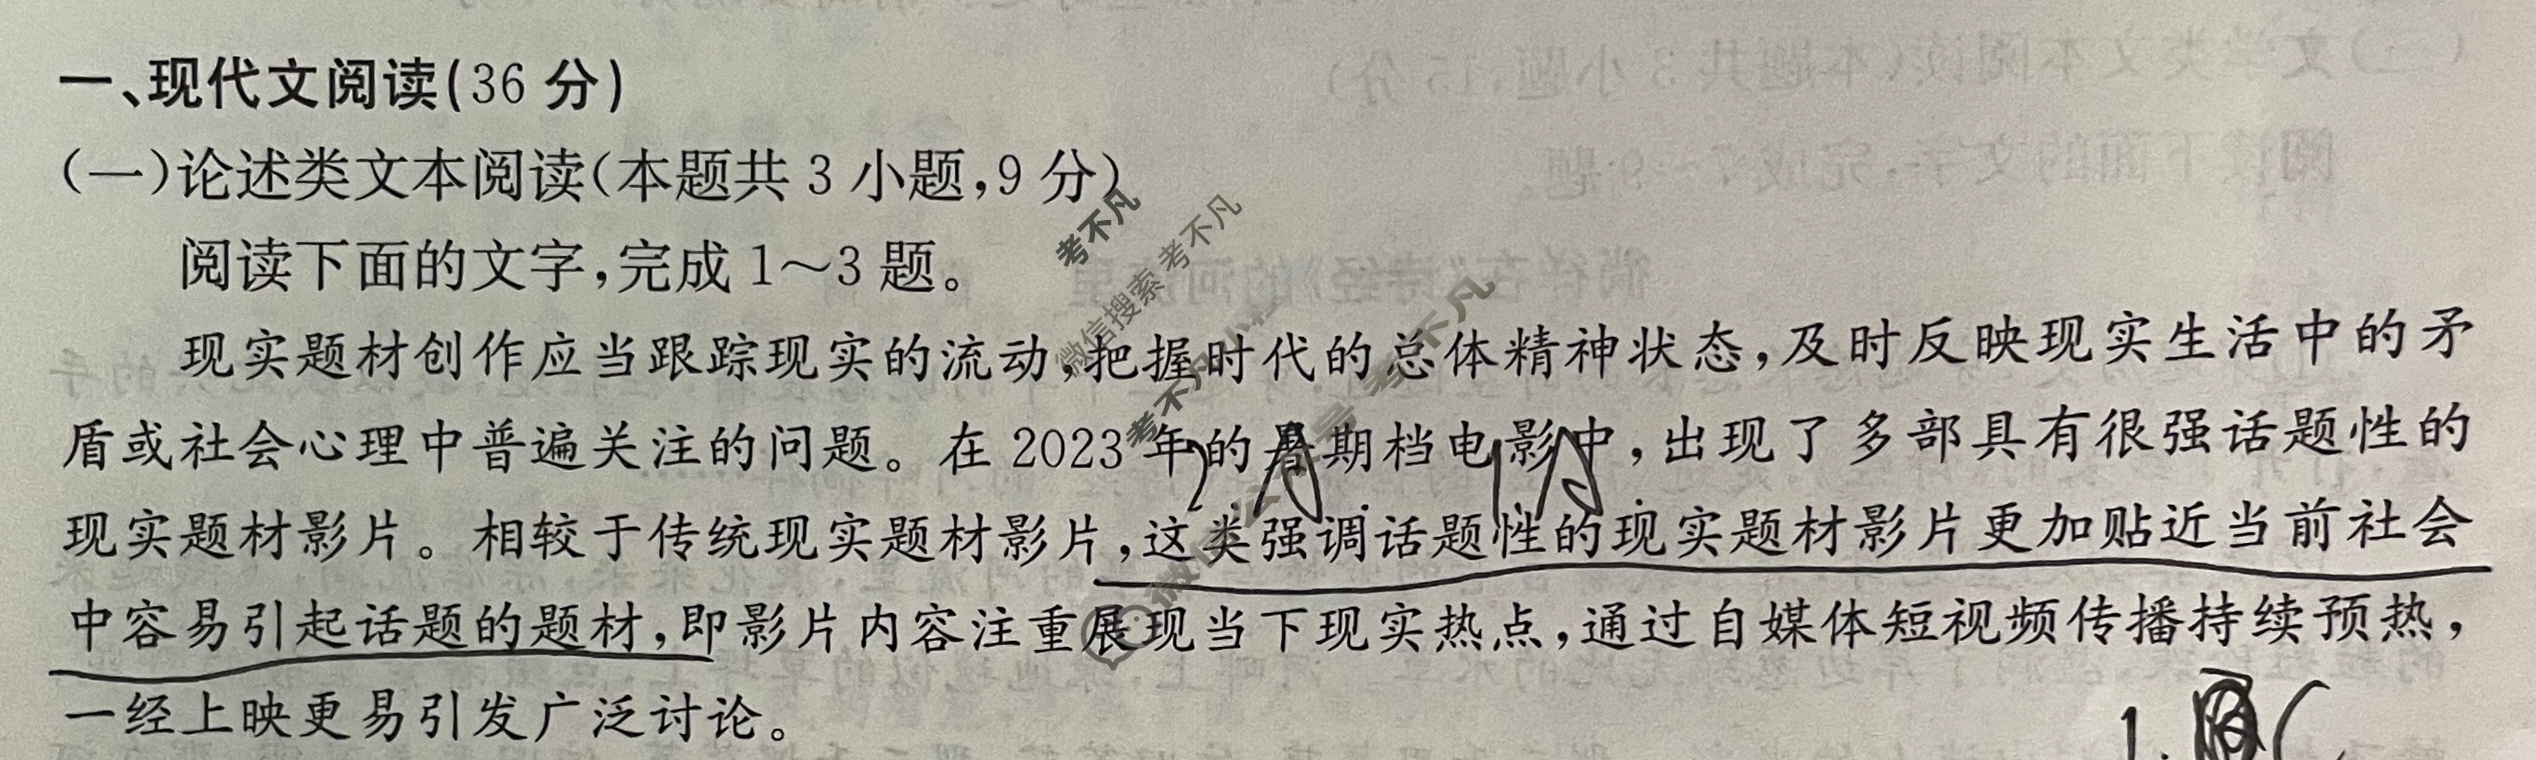 一、现代文阅读(36 分)
(一)论述类文本阅读(本题共 3 小题,9 分)
阅读下面的文字,完成 1～3 题。
现实题材创作应当跟踪现实的流动,把握时代的总体精神状态,及时反映现实生活中的矛
盾或社会心理中普遍关注的问题。在 2023 年的暑期档电影中,出现了多部具有很强话题性的
2A. 1A.
现实题材影片。相较于传统现实题材影片,这类强调话题性的现实题材影片更加贴近当前社会
中容易引起话题的题材,即影片内容注重展现当下现实热点,通过自媒体短视频传播持续预热,
一经上映更易引发广泛讨论。
1.
考不凡
微信搜索 考不凡
考不凡
考不凡